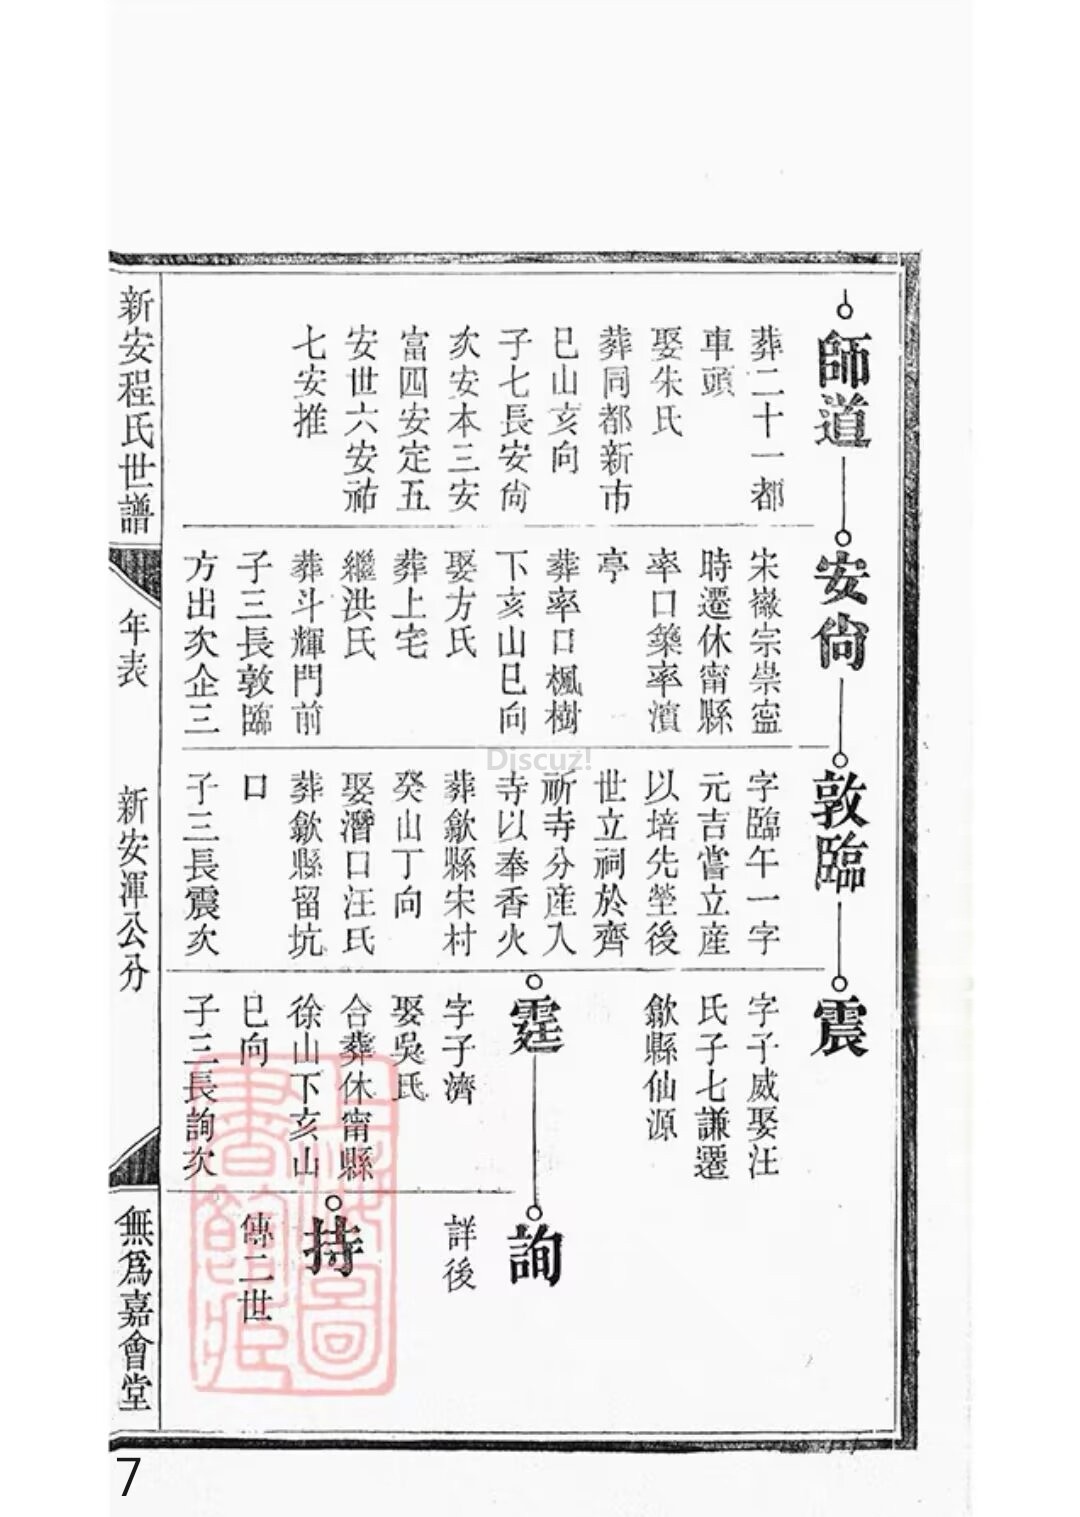 師道
葬二十一都
車頭
娶朱氏
葬同都新市
巳山亥向
子七長安尙
次安本三安
富四安定五
安世六安祐
七安推
安尙
宋徽宗崇寍
時遷休甯縣
率口築率濱
亭
葬率口楓樹
下亥山巳向
娶方氏
葬上宅
繼洪氏
葬斗輝門前
子三長敦臨
方出次企三
敦臨
字臨午一字
元吉嘗立産
以培先塋後
世立祠於齊
祈寺分産入
寺以奉香火
葬歙縣宋村
癸山丁向
娶潛口汪氏
葬歙縣留坑
口
子三長震次
震
字子威娶汪
氏子七謙遷
歙縣仙源
霆
字子濟
娶吳氏
合葬休甯縣
徐山下亥山
巳向
子三長詢次
詢
詳後
持
傳二世
新安程氏世譜
年表
新安渾公分
無爲嘉會堂
上海圖
書館藏
Discuz!
7